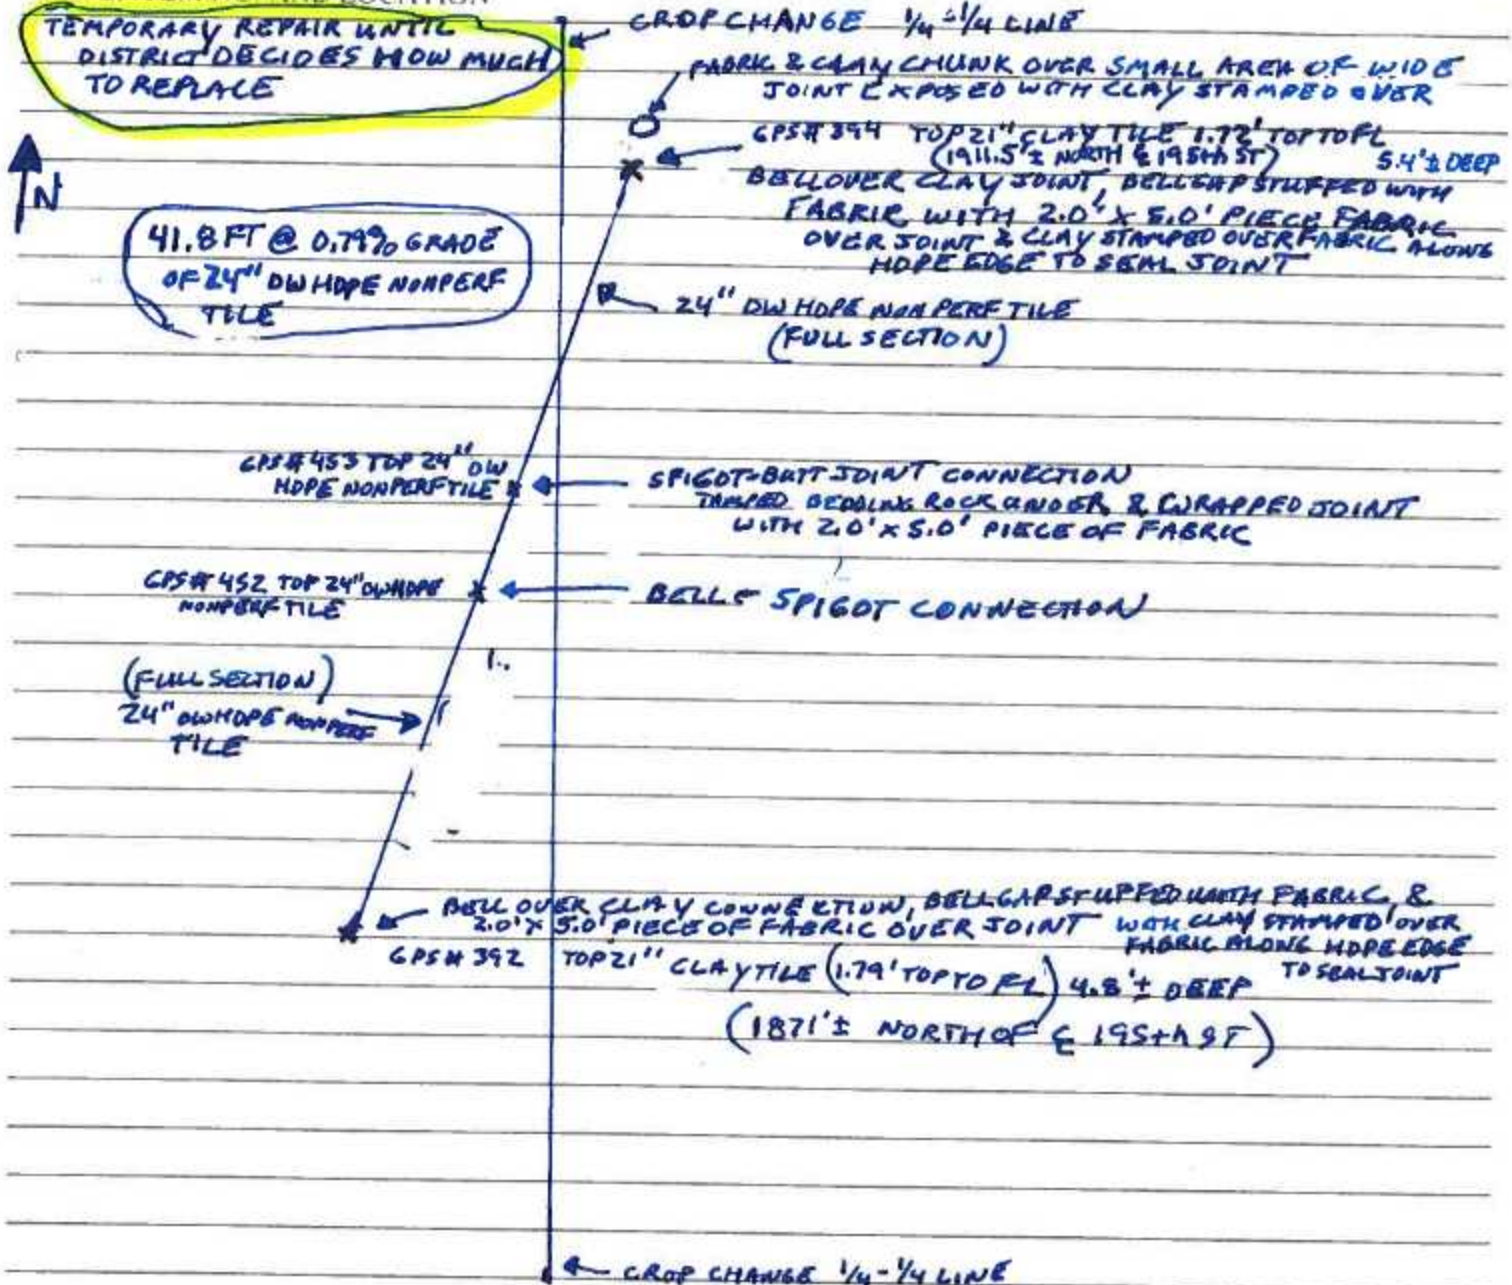 TEMPORARY REPAIR UNTIL
DISTRICT DECIDES HOW MUCH
TO REPLACE
CROP CHANGE 1/4-1/4 LINE
FABRIC & CLAY CHUNK OVER SMALL AREA OF WIDE
JOINT EXPOSED WITH CLAY STAMPED OVER
GPS# 394 TOP 21" CLAY TILE 1.72' TOP TO FL
(1911.5'± NORTH ℄ 195th ST) 5.4'± DEEP
BELL OVER CLAY JOINT, BELL GAP STUFFED WITH
FABRIR WITH 2.0' X 5.0' PIECE FABRIC
OVER JOINT & CLAY STAMPED OVER FABRIC ALONG
HDPE EDGE TO SEAL JOINT
N
41.8 FT @ 0.79% GRADE
OF 24" DW HDPE NONPERF
TILE
24" DW HDPE NONPERF TILE
(FULL SECTION)
GPS# 453 TOP 24" DW
HDPE NONPERF TILE
SPIGOT-BUTT JOINT CONNECTION
TAMPED BEDDING ROCK UNDER, & WRAPPED JOINT
WITH 2.0' X 5.0' PIECE OF FABRIC
GPS# 452 TOP 24" DW HDPE
NONPERF TILE
BELL - SPIGOT CONNECTION
(FULL SECTION)
24" DW HDPE NONPERF
TILE
BELL OVER CLAY CONNECTION, BELL GAP STUFFED WITH FABRIC, &
2.0' X 5.0' PIECE OF FABRIC OVER JOINT WITH CLAY STAMPED OVER
FABRIC ALONG HDPE EDGE
TO SEAL JOINT
GPS# 392 TOP 21" CLAY TILE (1.79' TOP TO FL) 4.8'± DEEP
(1871'± NORTH OF ℄ 195th ST)
CROP CHANGE 1/4-1/4 LINE